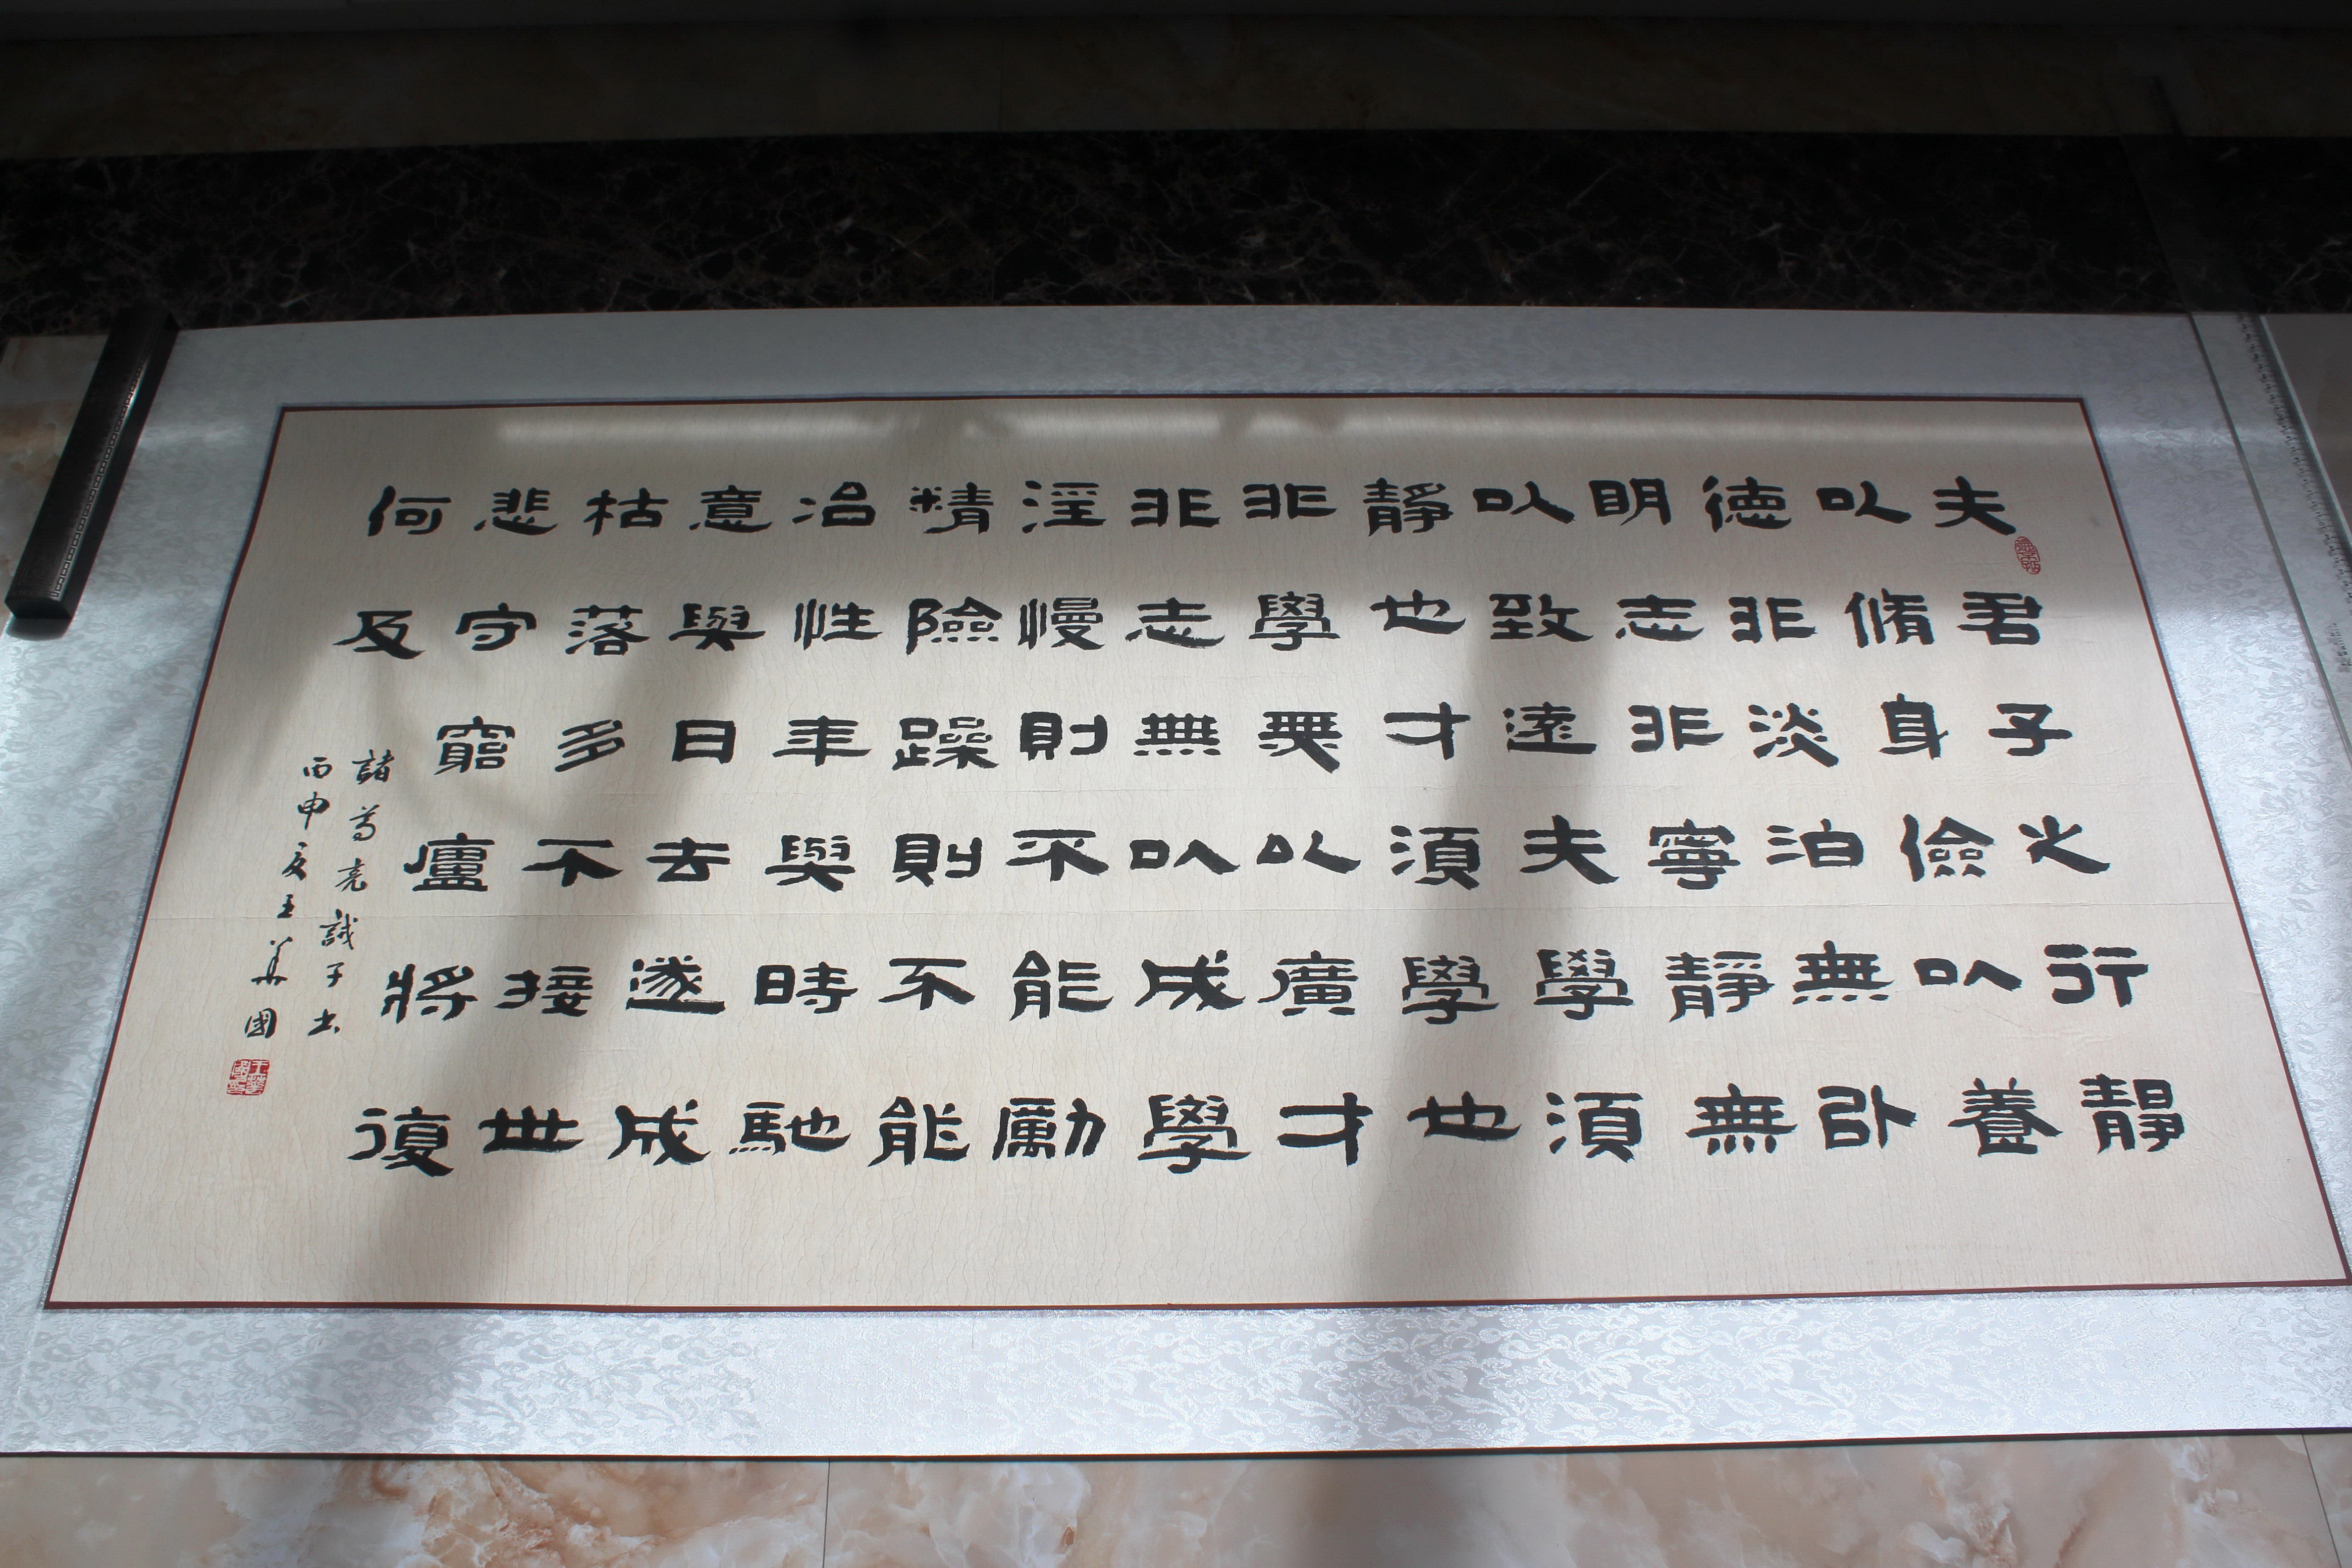 夫君子之行靜
以脩身儉以養
徳非淡泊無以
明志非寧靜無
以致遠夫學須
靜也才須學也
非學無以廣才
非志無以成學
淫慢則不能勵
精險躁則不能
冶性年與時馳
意與日去遂成
枯落多不接世
悲守窮廬將復
何及
諸葛亮誡子書
丙申夏王華國